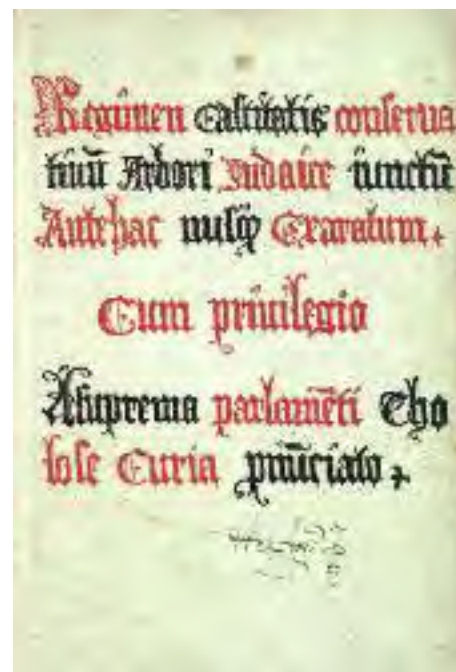 Regimen Castitatis conserua
tiuū Ardori Iudaice iunctū
Antehac nusq̄ Exaratum.
Cum priuilegio
A suprema parlamēti Tho
lose Curia pnūciato.